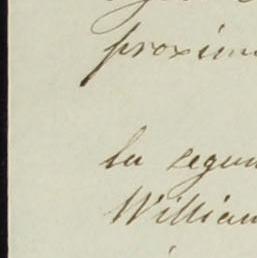 proxim
la segun
William